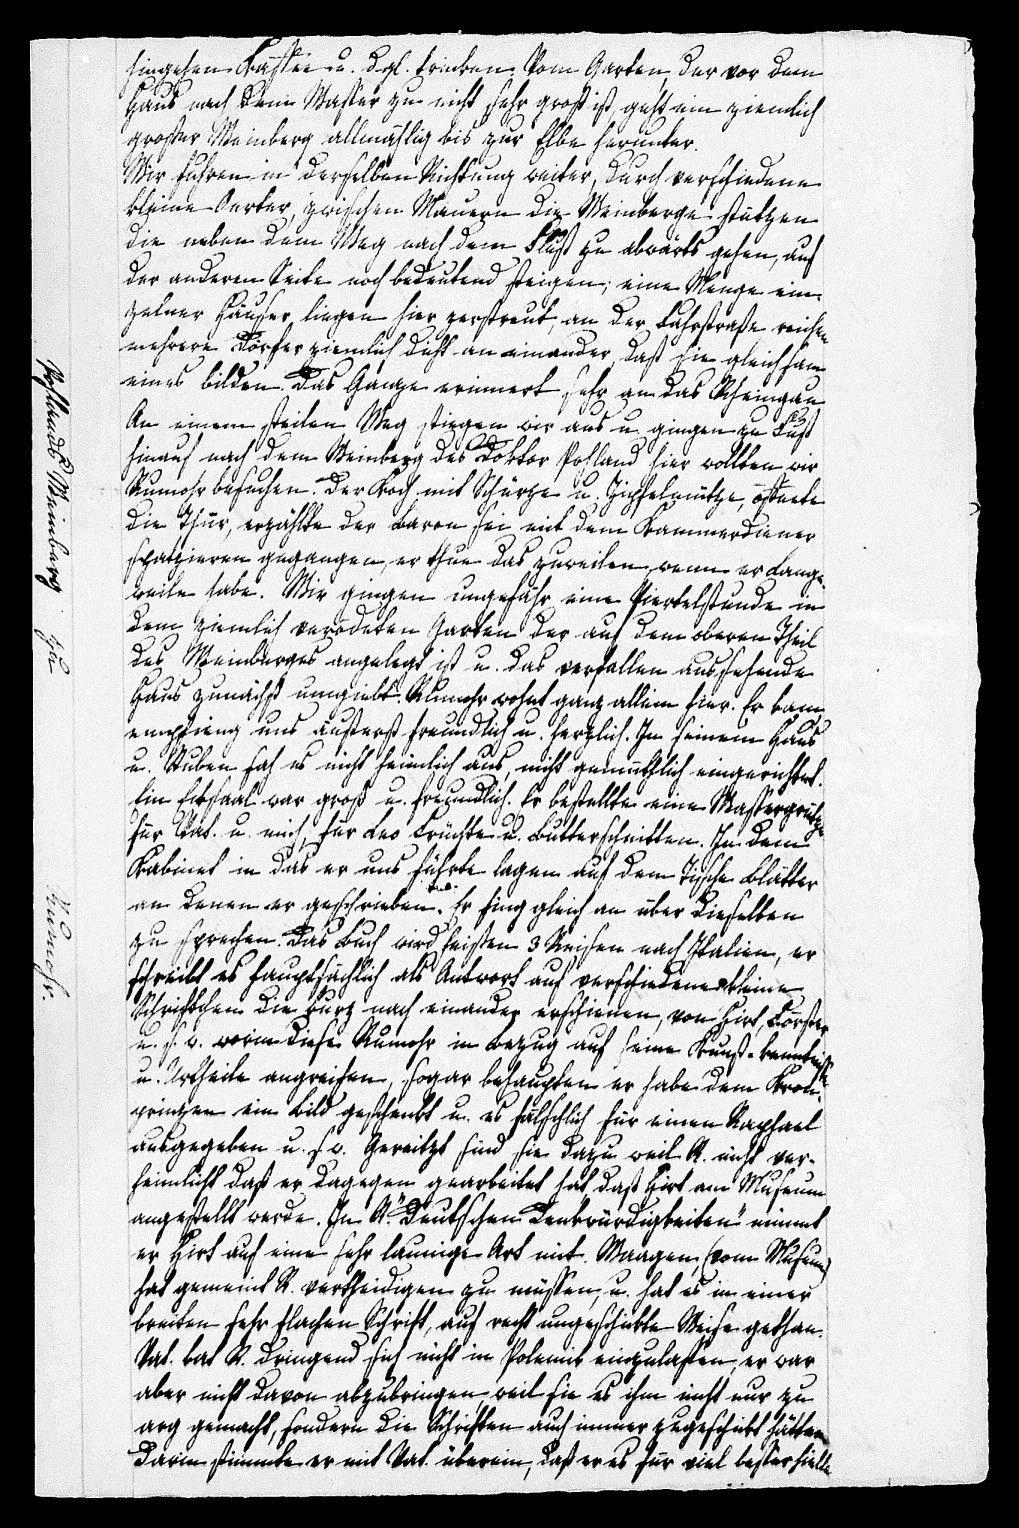 hingehen Kaffee u. dgl. trinken. Vom Garten der vor dem
Haus nach dem Wasser zu nicht sehr groß ist, geht ein ziemlich
großer Weinberg allmählig bis zur Elbe herunter.
Wir fuhren in derselben Richtung weiter, durch verschiedene
kleine Oerter, zwischen Mauern die Weinberge stützen
die neben dem Weg nach dem Fluß zu abwärts gehen, auf
der anderen Seite noch bedeutend steigen; eine Menge ein-
zelner Häuser liegen hier zerstreut, an der Fahrstraße reichen
mehrere Dörfer ziemlich dicht an einander, daß sie gleichsam
eines bilden. Das Ganze erinnert sehr an das Rheingau
An einem steilen Weg stiegen wir aus u. gingen zu Fuß
hinauf nach dem Weinberg des Doktor Pohland hier wollten wir
Rumohr besuchen. Der Koch mit Schürze u. Zipfelmütze, öffnete
die Thür, erzählte der Baron sei mit dem Kammerdiener
spatzieren gegangen, er thue das zuweilen, wenn er Lange-
weile habe. Wir gingen ungefähr eine Viertelstunde in
dem ziemlich verödeten Garten der auf dem oberen Theil
des Weinberges angelegt ist u. das verfallen aussehende
Haus zunächst umgiebt. Rumohr wohnt ganz allein hier. Er kam
empfieng uns äußerst freundlich u. herzlich. In seinem Haus
u. Stuben sah es nicht heimlich aus, nicht gemüthlich eingerichtet.
Ein Eßsaal war groß u. freundlich. Er bestellte eine Wassergrütze
für Vat. u. mich, für Leo Früchte u. Butterschnitten. In dem
Kabinet in das er uns führte lagen auf dem Tische Blätter
an denen er geschrieben. Er fing gleich an über dieselben
zu sprechen. Das Buch wird heißen 3 Reisen nach Italien, er
schreibt es hauptsächlich als Antwort auf verschiedene kleine
Schriftchen die kurz nach einander erschienen, von Hirt, Förster
u. s. w. worin diese Rumohr in Bezug auf seine Kunst-kenntniße
u. Urtheile angreifen, sogar behaupten er habe dem Kron-
prinzen ein Bild geschenkt u. es fälschlich für einen Raphael
ausgegeben u. s w. Gereitzt sind sie dazu weil R. nicht ver-
heimlicht daß er dagegen gearbeitet hat, daß Hirt am Museum
angestellt werde. In R's "Deutschen Denkwürdigkeiten" nimmt
er Hirt auf eine sehr launige Art mit. Waagen, (vom Museum)
hat gemeint R. vertheidigen zu müssen, u. hat es in einer
breiten sehr flachen Schrift, auf recht ungeschickte Weise gethan.
Vat. bat R. dringend sich nicht in Polemik einzulassen, er war
aber nicht davon abzubringen, weil sie es ihm nicht nur zu
arg gemacht, sondern die Schriften auch immer zugeschickt hätten
Darin stimmte er mit Vat. überein, daß er es für viel besser hielte
Pohlands Weinberg zu
Rumohr.